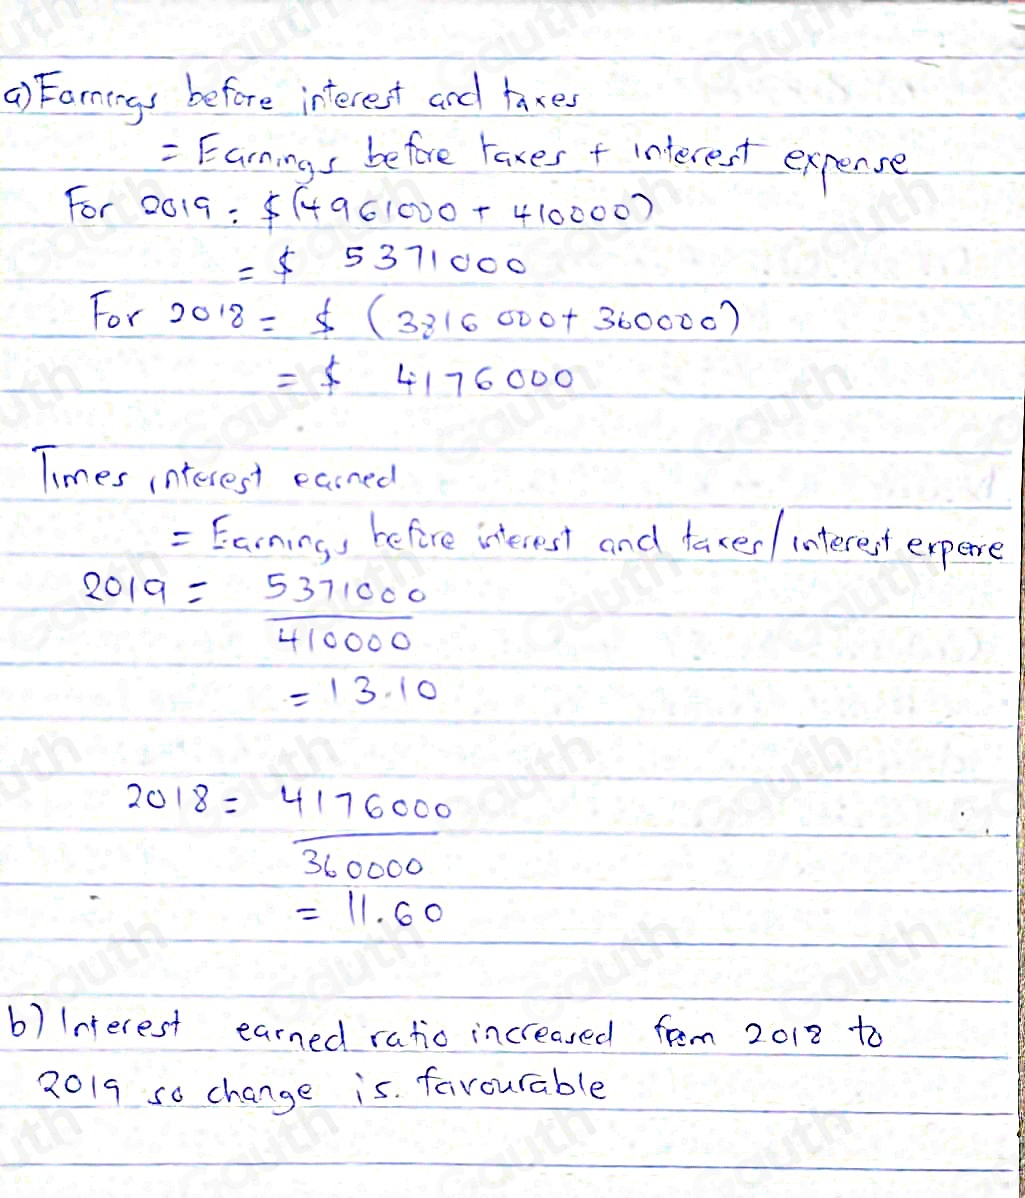 a) Earnings before interest and taxes
= Earnings before taxes + interest expense
For 2019 : $(4961000 + 410000)
= $ 5371000
For 2018 = $ (3816000 + 360000)
= $ 4176000
Times interest earned
= Earnings before interest and taxes/interest expense
2019 = 5371000
410000
= 13.10
2018 = 4176000
360000
= 11.60
b) Interest earned ratio increased from 2018 to
2019 so change is. favourable